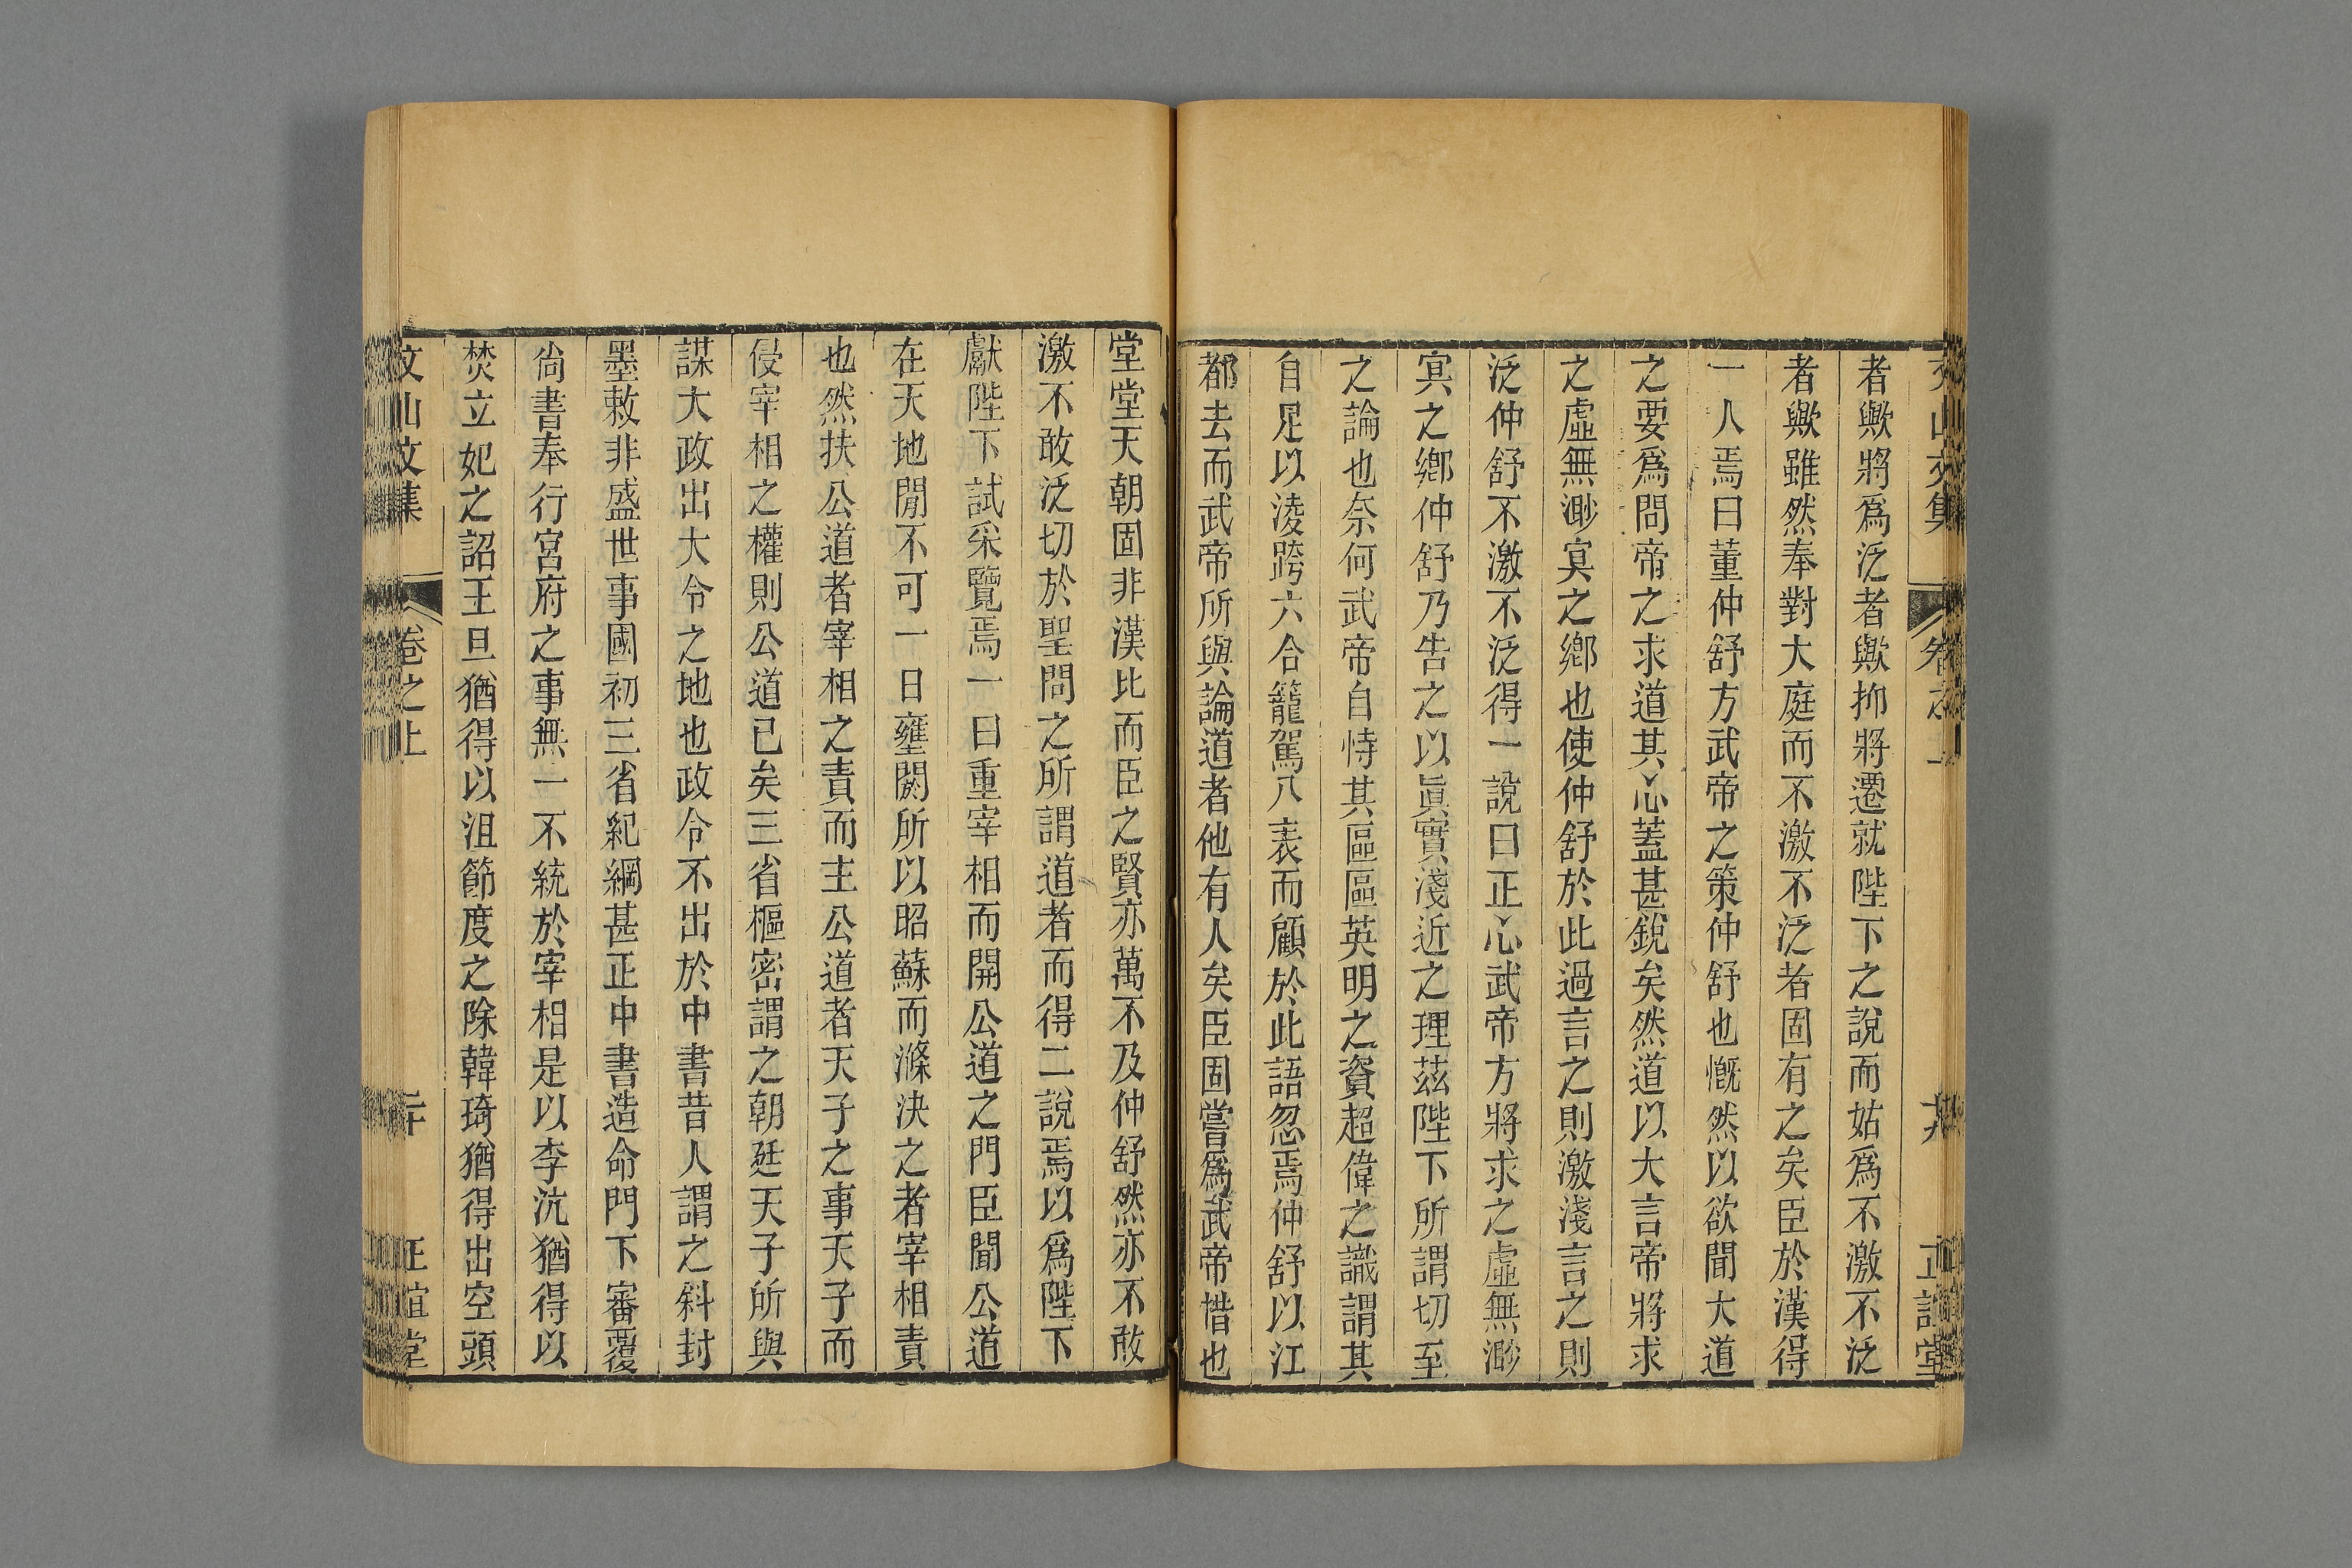 者歟將爲泛者歟抑將遷就陛下之說而姑爲不激不泛
者歟雖然奉對大庭而不激不泛者固有之矣臣於漢得
一人焉曰董仲舒方武帝之策仲舒也慨然以欲聞大道
之要爲問帝之求道其心蓋甚銳矣然道以大言帝將求
之虛無渺冥之鄉也使仲舒於此過言之則激淺言之則
泛仲舒不激不泛得一說曰正心武帝方將求之虛無渺
冥之鄉仲舒乃告之以眞實淺近之理茲陛下所謂切至
之論也奈何武帝自恃其區區英明之資超偉之識謂其
自足以淩跨六合籠駕八表而顧於此語忽焉仲舒以江
都去而武帝所與論道者他有人矣臣固嘗爲武帝惜也
堂堂天朝固非漢比而臣之賢亦萬不及仲舒然亦不敢
激不敢泛切於聖問之所謂道者而得二說焉以爲陛下
獻陛下試采覽焉一曰重宰相而開公道之門臣聞公道
在天地閒不可一日壅閼所以昭蘇而滌決之者宰相責
也然扶公道者宰相之責而主公道者天子之事天子而
侵宰相之權則公道已矣三省樞密謂之朝廷天子所與
謀大政出大令之地也政令不出於中書昔人謂之斜封
墨敕非盛世事國初三省紀綱甚正中書造命門下審覆
尙書奉行宮府之事無一不統於宰相是以李沆猶得以
焚立妃之詔王旦猶得以沮節度之除韓琦猶得出空頭
文山文集 卷之上 二十 正誼堂